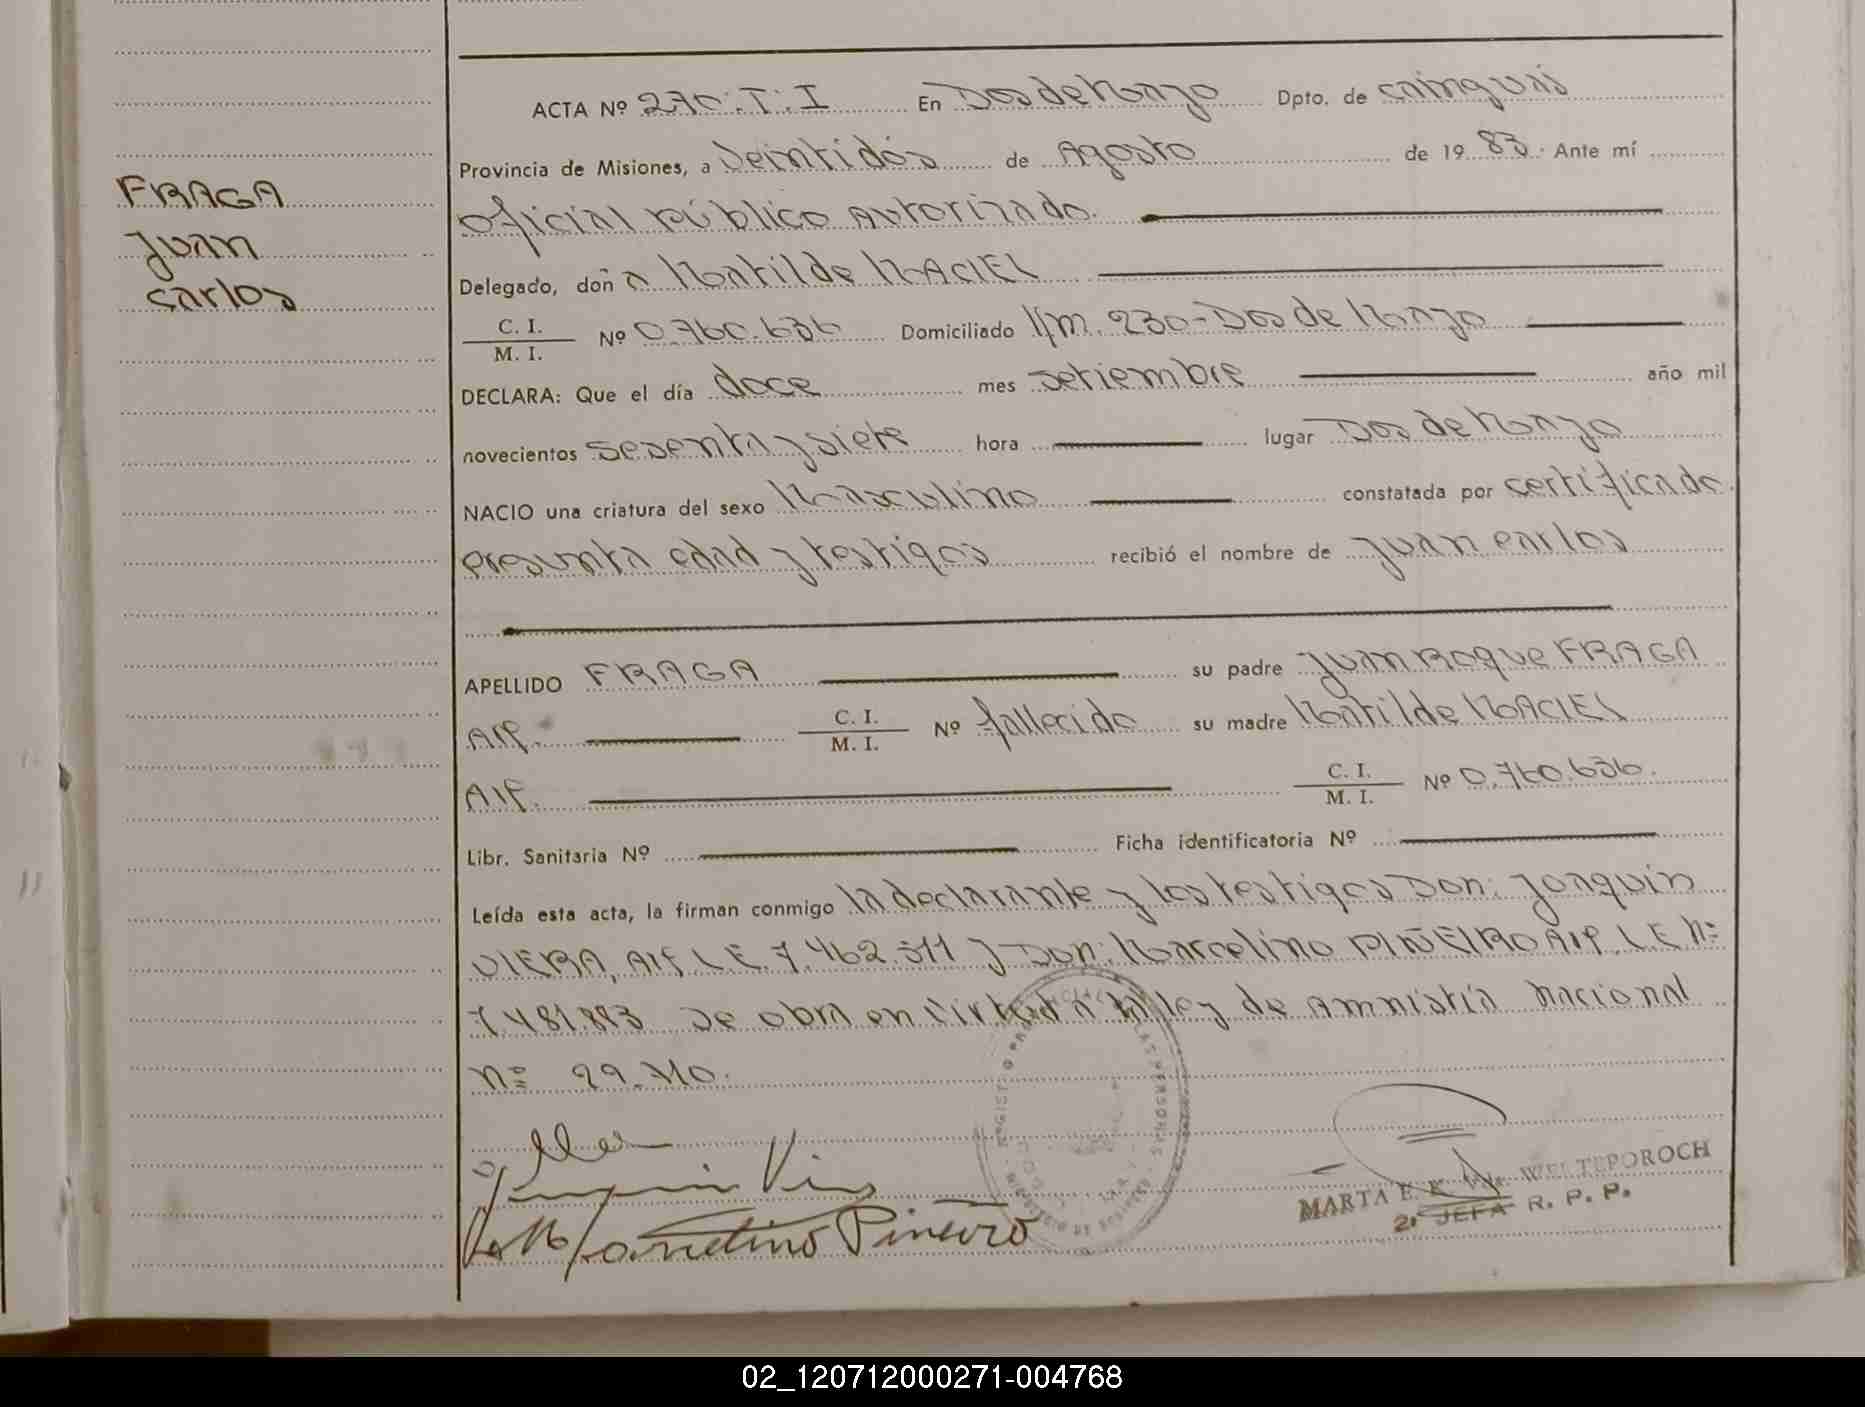 FRAGA
Juan
Carlos
ACTA Nº 270.T.I En Dos de Mayo Dpto. de Cainguás
Provincia de Misiones, a Veintidós de Agosto de 19 83. Ante mí
Oficial Público Autorizado.
Delegado, doñ a Matilde MACIEL
C. I.
M. I. Nº 0.760.636 Domiciliado Km. 230-Dos de Mayo
DECLARA: Que el día doce mes setiembre año mil
novecientos sesenta y siete hora lugar Dos de Mayo
NACIO una criatura del sexo Masculino constatada por certificado
presunta edad y testigos recibió el nombre de Juan Carlos
APELLIDO FRAGA su padre Juan Roque FRAGA
AIP. C. I.
M. I. Nº fallecido su madre Matilde MACIEL
AIP. C. I.
M. I. Nº 0.760.636.
Libr. Sanitaria Nº Ficha identificatoria Nº
Leída esta acta, la firman conmigo la declarante y los testigos Don: Joaquín
VIERA, AIP L.E. 7.462.511 y Don: Marcelino PIÑEIRO AIP. L.E Nº
7.481.893 Se obra en virtud a la ley de Amnistía Nacional
Nº
Marcelino Piñeiro
MARTA E. WELTEPOROCH
2º JEFA R. P. P.
02_120712000271-004768